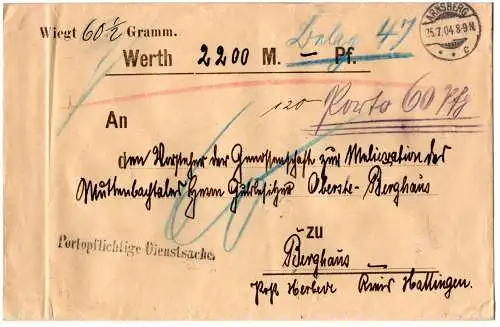 Wiegt 60½ Gramm.
ARNSBERG
25.7.04.8-9N.
* * c
47
Werth 2200 M. — Pf.
120
Porto 60 Pfg
An
den Vorsteher der Genossenschaft zur Melioration des
Muttenbachtales Herrn Gutsbesitzer Oberste-Berghaus
zu
Portopflichtige Dienstsache.
Berghaus
Post Herbede Kreis Hattingen.